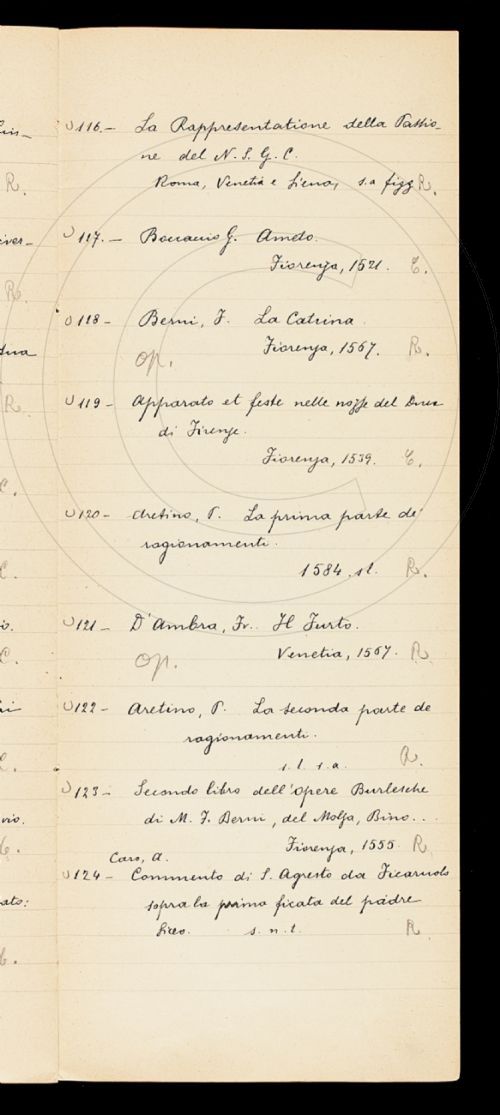 116.- La Rappresentatione della Passio-
ne del N. S. G. C.
Roma, Venetia e Siena, s.a figg R.
117.- Boccaccio G. Ameto.
Fiorenza, 1521. C.
118- Berni, F. La Catrina.
op. Fiorenza, 1567. R.
119- Apparato et feste nelle nozze del Duca
di Firenze.
Fiorenza, 1539. C.
120- Aretino, P. La prima parte de'
ragionamenti.
1584. s.l. R.
121- D'Ambra, Fr. Il Furto.
op. Venetia, 1567. R
122- Aretino, P. La seconda parte de
ragionamenti.
s. l. s. a. R.
123- Secondo libro dell'opere Burlesche
di M. F. Berni, del Molza, Bino...
Fiorenza, 1555. R
Caro, A.
124- Commento di S. Agresto da Ficaruolo
sopra la prima ficata del padre
Siceo. s. n. t. R